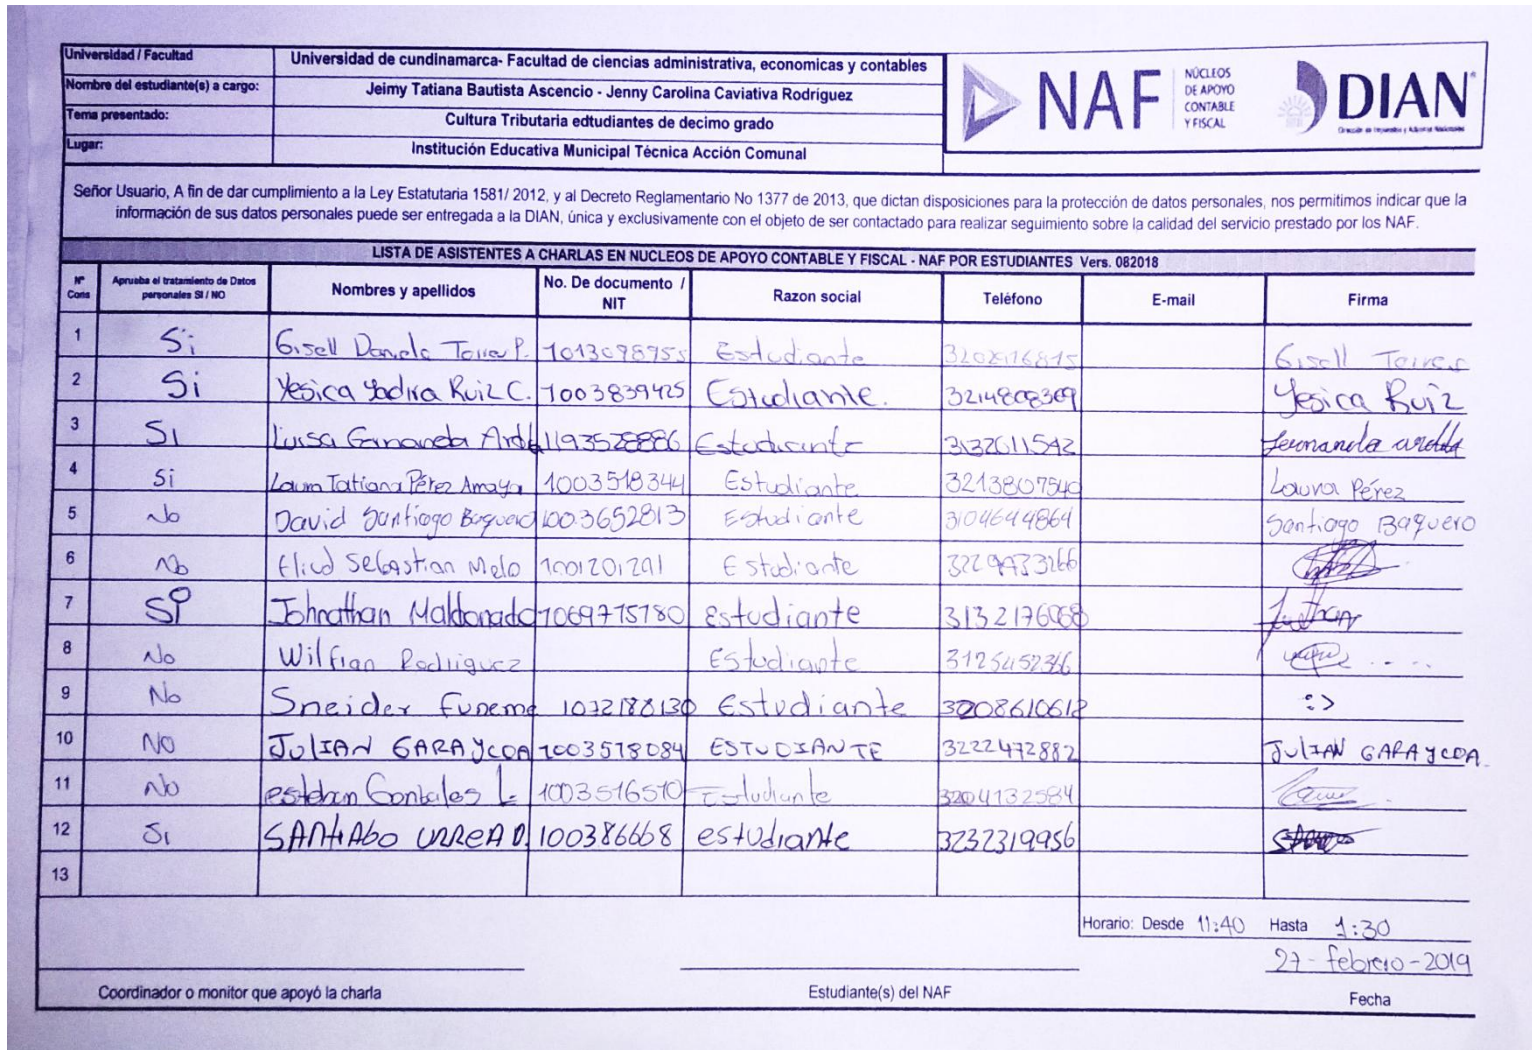 Universidad / Facultad Universidad de cundinamarca- Facultad de ciencias administrativa, economicas y contables
Nombre del estudiante(s) a cargo: Jeimy Tatiana Bautista Ascencio - Jenny Carolina Caviativa Rodriguez
Tema presentado: Cultura Tributaria edtudiantes de decimo grado
Lugar: Institución Educativa Municipal Técnica Acción Comunal
NAF NÚCLEOS DE APOYO CONTABLE Y FISCAL
DIAN
Dirección de Impuestos y Aduanas Nacionales
Señor Usuario, A fin de dar cumplimiento a la Ley Estatutaria 1581/ 2012, y al Decreto Reglamentario No 1377 de 2013, que dictan disposiciones para la protección de datos personales, nos permitimos indicar que la
información de sus datos personales puede ser entregada a la DIAN, única y exclusivamente con el objeto de ser contactado para realizar seguimiento sobre la calidad del servicio prestado por los NAF.
LISTA DE ASISTENTES A CHARLAS EN NUCLEOS DE APOYO CONTABLE Y FISCAL - NAF POR ESTUDIANTES Vers. 082018
Nº Cons Aprueba el tratamiento de Datos personales SI / NO Nombres y apellidos No. De documento / NIT Razon social Teléfono E-mail Firma
1 Si Gisell Daniela Torres P. 1013098955 Estudiante Gisell Torres
2 Si Yesica Yadira Ruiz C. 1003839425 Estudiante. 3214808309 Yesica Ruiz
3 SI Luisa Fernanda 1193528886 Estudiante 3132611542 fernanda
4 Si Laura Tatiana Pérez Amaya 1003518344 Estudiante 3213807540 Laura Pérez
5 No David Santiago Baquero 1003652813 Estudiante 3104644864 Santiago Baquero
6 No Elicd Sebastian Melo 1001201291 Estudiante 3229933266
7 Si Johnathan Maldonado 1069715180 estudiante 3132176068
8 No Wilfian Rodriguez Estudiante
9 No Sneider Funeme 1072188130 Estudiante 3208610612 :>
10 NO JULIAN GARAYCOA 1003518084 ESTUDIANTE 3222472882 JULIAN GARAYCOA
11 No esteban Gonzales L 1003516510 Estudiante 3204132584
12 Si SANtiAbo URReA D. 100386668 estudiante 3232319956
13
Horario: Desde 11:40 Hasta 1:30
27-febrero-2019
Coordinador o monitor que apoyó la charla Estudiante(s) del NAF Fecha